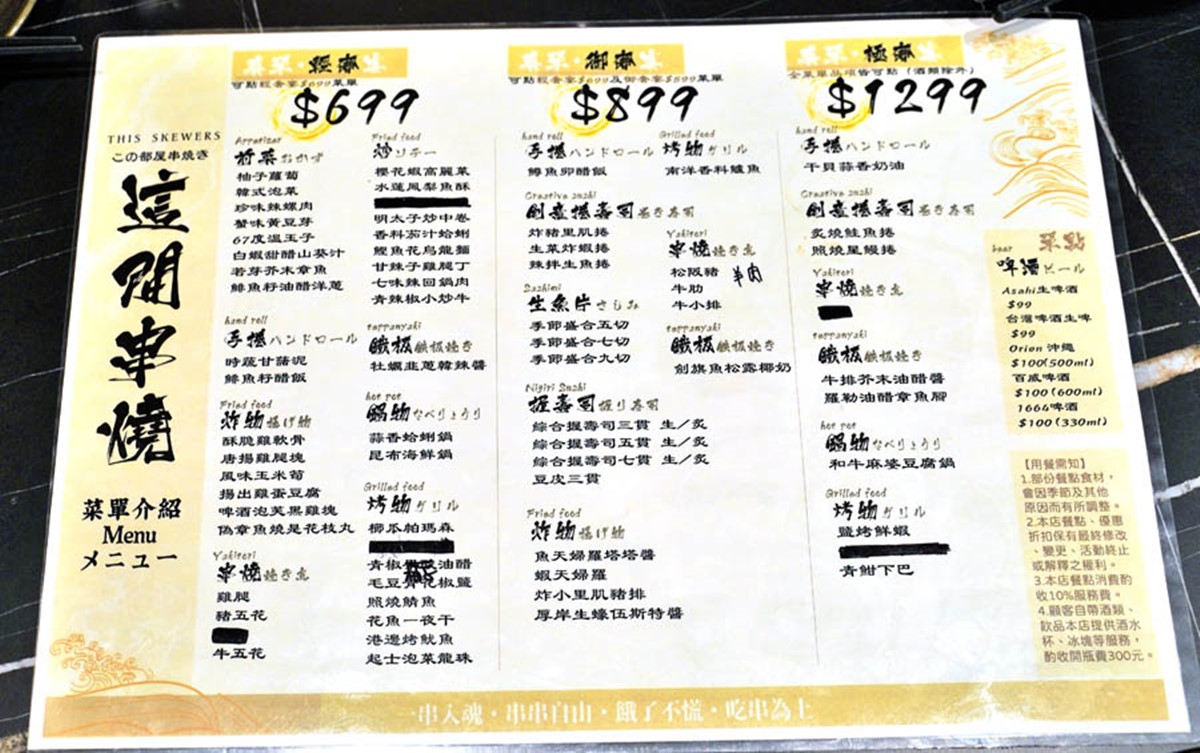 THIS SKEWERS
この部屋串焼き
這間串燒
菜單介紹
Menu
メニュー
菜單・輕奢
可點輕奢宴$699菜單
$699
Appetizer
前菜おかず
柚子蘿蔔
韓式泡菜
珍味辣螺肉
蟹味黃豆芽
67度溫玉子
白蝦甜醋山葵汁
若芽芥末章魚
鯡魚籽油醋洋蔥
hand roll
手捲ハンドロール
時蔬甘藷泥
鯡魚籽醋飯
Fried food
炸物揚げ物
酥脆雞軟骨
唐揚雞腿塊
風味玉米筍
揚出雞蛋豆腐
啤酒泡芙黑雞塊
偽章魚燒是花枝丸
Yakitori
串燒焼き鳥
雞腿
豬五花
牛五花
Fried food
炒ソテー
櫻花蝦高麗菜
水蓮鳳梨魚酥
明太子炒中卷
香料茄汁蛤蜊
鰹魚花烏龍麵
甘辣子雞腿丁
七味辣回鍋肉
青辣椒小炒牛
teppanyaki
鐵板鉄板焼き
牡蠣韭蔥韓辣醬
hot pot
鍋物なべりょうり
蒜香蛤蜊鍋
昆布海鮮鍋
Grilled food
烤物グリル
櫛瓜帕瑪森
青椒油醋
毛豆花椒鹽
照燒鯖魚
花魚一夜干
港邊烤魷魚
起士泡菜龍珠
菜單・御奢
可點輕奢宴$699及御奢宴$899菜單
$899
hand roll
手捲ハンドロール
鱒魚卵醋飯
Creative sushi
創意捲壽司巻き寿司
炸豬里肌捲
生菜炸蝦捲
辣拌生魚捲
Sashimi
生魚片さしみ
季節盛合五切
季節盛合七切
季節盛合九切
Nigiri Sushi
握壽司握り寿司
綜合握壽司三貫 生/炙
綜合握壽司五貫 生/炙
綜合握壽司七貫 生/炙
豆皮三貫
Fried food
炸物揚げ物
魚天婦羅塔塔醬
蝦天婦羅
炸小里肌豬排
厚岸生蠔伍斯特醬
Grilled food
烤物グリル
南洋香料鱸魚
Yakitori
串燒焼き鳥
松阪豬 羊肉
牛肋
牛小排
teppanyaki
鐵板鉄板焼き
劍旗魚松露椰奶
菜單・極奢
全菜單品項皆可點(酒類除外)
$1299
hand roll
手捲ハンドロール
干貝蒜香奶油
Creative sushi
創意捲壽司巻き寿司
炙燒鮭魚捲
照燒星鰻捲
Yakitori
串燒焼き鳥
teppanyaki
鐵板鉄板焼き
牛排芥末油醋醬
羅勒油醋章魚腳
hot pot
鍋物なべりょうり
和牛麻婆豆腐鍋
Grilled food
烤物グリル
鹽烤鮮蝦
青魽下巴
beer
啤酒ビール
Asahi生啤酒
$99
台灣啤酒生啤
$99
Orion 沖繩
$100(500ml)
百威啤酒
$100(600ml)
1664啤酒
$100(330ml)
【用餐需知】
1.部份餐點食材,
會因季節及其他
原因而有所調整。
2.本店餐點、優惠
折扣保有最終修改
、變更、活動終止
或解釋之權利。
3.本店餐點消費酌
收10%服務費。
4.顧客自帶酒類、
飲品本店提供酒水
杯、冰塊等服務,
酌收開瓶費300元。
一串入魂・串串自由・餓了不慌・吃串為上